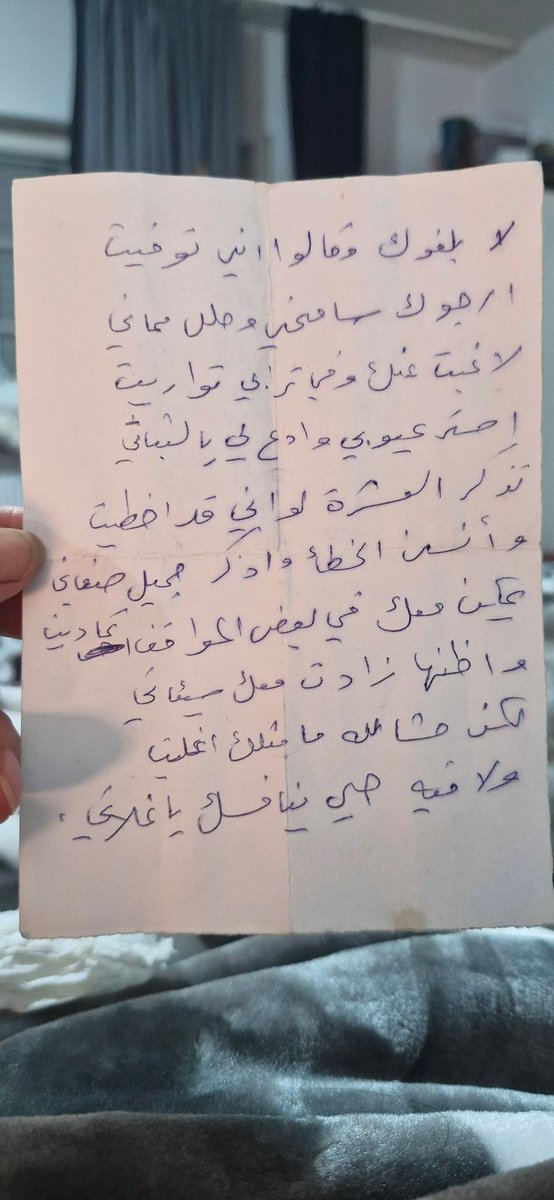 لا بلغوك وقالوا اني توفيت
ارجوك سامحني وحلل مماتي
لا غبت عنك وفي ترابي تواريت
إستر عيوبي وادع لي بالثباتي
تذكر العشرة لو اني قد اخطيت
وأنسى الخطأ واذكر جميل صفاتي
يمكن معك في بعض المواقف تماديت
واظنها زادت معك سيئاتي
لكن حشا الله ما مثلك اغليت
ولا فيه حي ينافسك يا غلاتي .